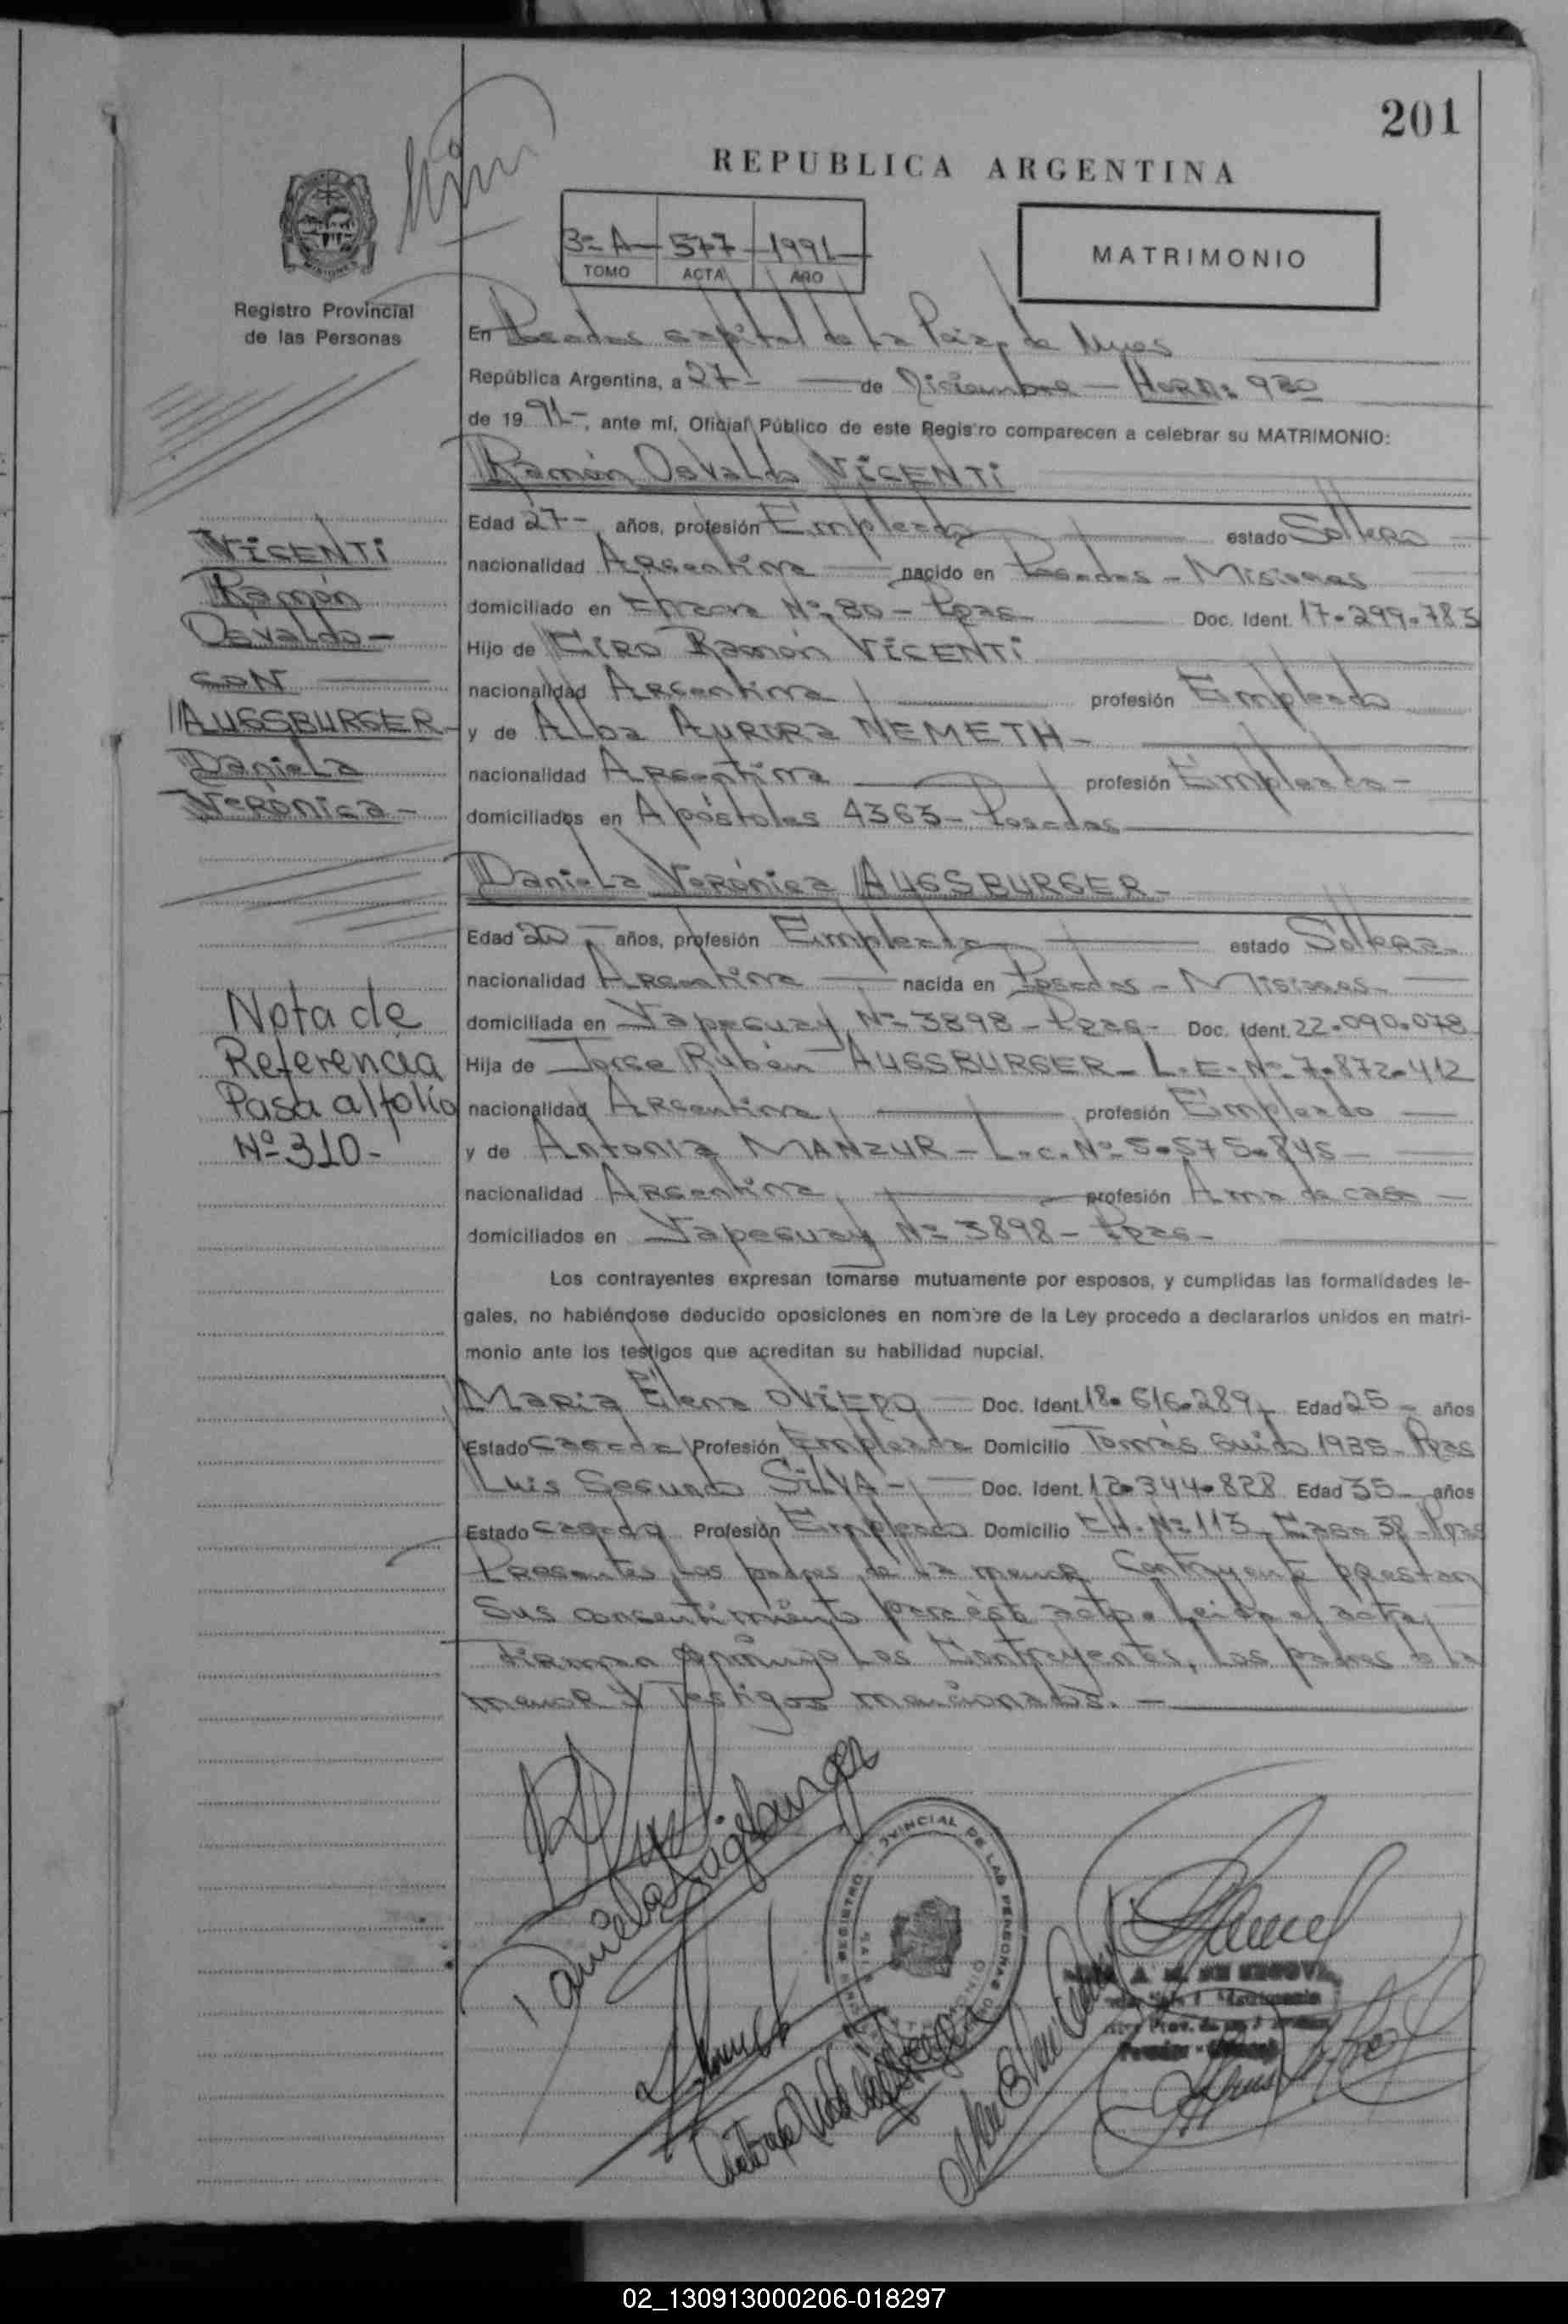 201
REPUBLICA ARGENTINA
3º A 577 1991
TOMO ACTA AÑO
MATRIMONIO
MISIONES
Registro Provincial
de las Personas
En Posadas capital de la Pcia, de Mnes
República Argentina, a 27- de Diciembre - HORA: 930
de 1991-, ante mí, Oficial Público de este Registro comparecen a celebrar su MATRIMONIO:
Ramón Osvaldo VICENTI
Edad 27- años, profesión Empleado estado Soltero
nacionalidad Argentina nacido en Posadas - Misiones
domiciliado en Nº 80 - Pdas Doc. Ident. 17.299.783
Hijo de CIRO Ramón VICENTI
nacionalidad Argentina profesión Empleado
y de Alba Aurora NEMETH-
nacionalidad Argentina profesión Empleada-
domiciliados en Apóstoles 4363- Posadas
Daniela Verónica AUGSBURGER-
Edad 20- años, profesión Empleada estado Soltera-
nacionalidad Argentina nacida en Posadas - Misiones-
domiciliada en Yapeguay Nº 3898 - Pdas- Doc. Ident. 22.090.078
Hija de Jorge Rubén AUGSBURGER- L.E. Nº 7.872.412
nacionalidad Argentina, profesión Empleado
y de Antonia MANZUR - L.C. Nº 5.575.845-
nacionalidad Argentina, profesión Ama de casa
domiciliados en Yapeguay Nº 3898- Pdas-
Los contrayentes expresan tomarse mutuamente por esposos, y cumplidas las formalidades le-
gales, no habiéndose deducido oposiciones en nombre de la Ley procedo a declararlos unidos en matri-
monio ante los testigos que acreditan su habilidad nupcial.
Maria Elena OVIEDO Doc. Ident. 18.616.289- Edad 25- años
Estado casada Profesión Empleada Domicilio Tomás Guido 1935- Pdas
Luis Segundo SILVA- Doc. Ident. 12.344.828 Edad 35- años
Estado casado Profesión Empleado Domicilio CH. Nº 113- Casa 38-Pdas
Presentes los padres de la menor Contrayente prestan
sus consentimiento para éste acto. Leida el acta,
Firman conmigo Los Contrayentes, los padres de la
menor y Testigos mencionados.-
VICENTI
Ramón
Osvaldo-
CON
AUGSBURGER-
Daniela
Verónica-
Nota de
Referencia
Pasa al folio
Nº 310-
Daniela Augsburger
02_130913000206-018297